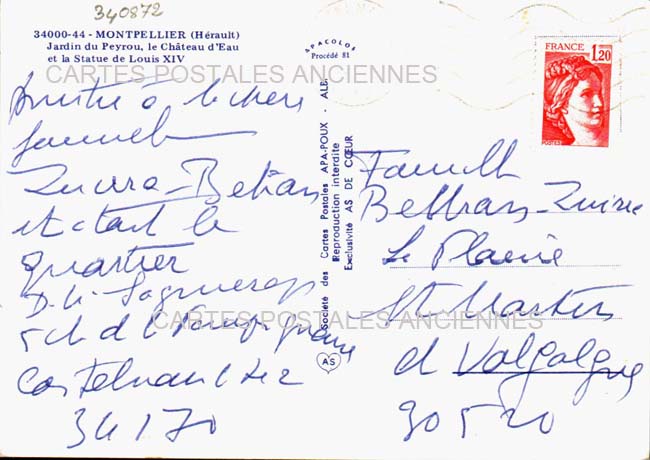 340872
34000-44 - MONTPELLIER (Hérault)
Jardin du Peyrou, le Château d'Eau
et la Statue de Louis XIV
APACOLOR
Procédé 81
CARTES POSTALES ANCIENNES
à
Zuura-Beltran
et tout le
quartier
5 ch d l
Castelnau l Lez
34170
Société des Cartes Postales APA-POUX - ALBI
Reproduction interdite
Exclusivité AS DE CŒUR
AS
FRANCE
1,20
POSTES
Famille
Beltran-Zuira
La Plaine
St Martin
d Valgalgues
30520
CARTES POSTALES ANCIENNES